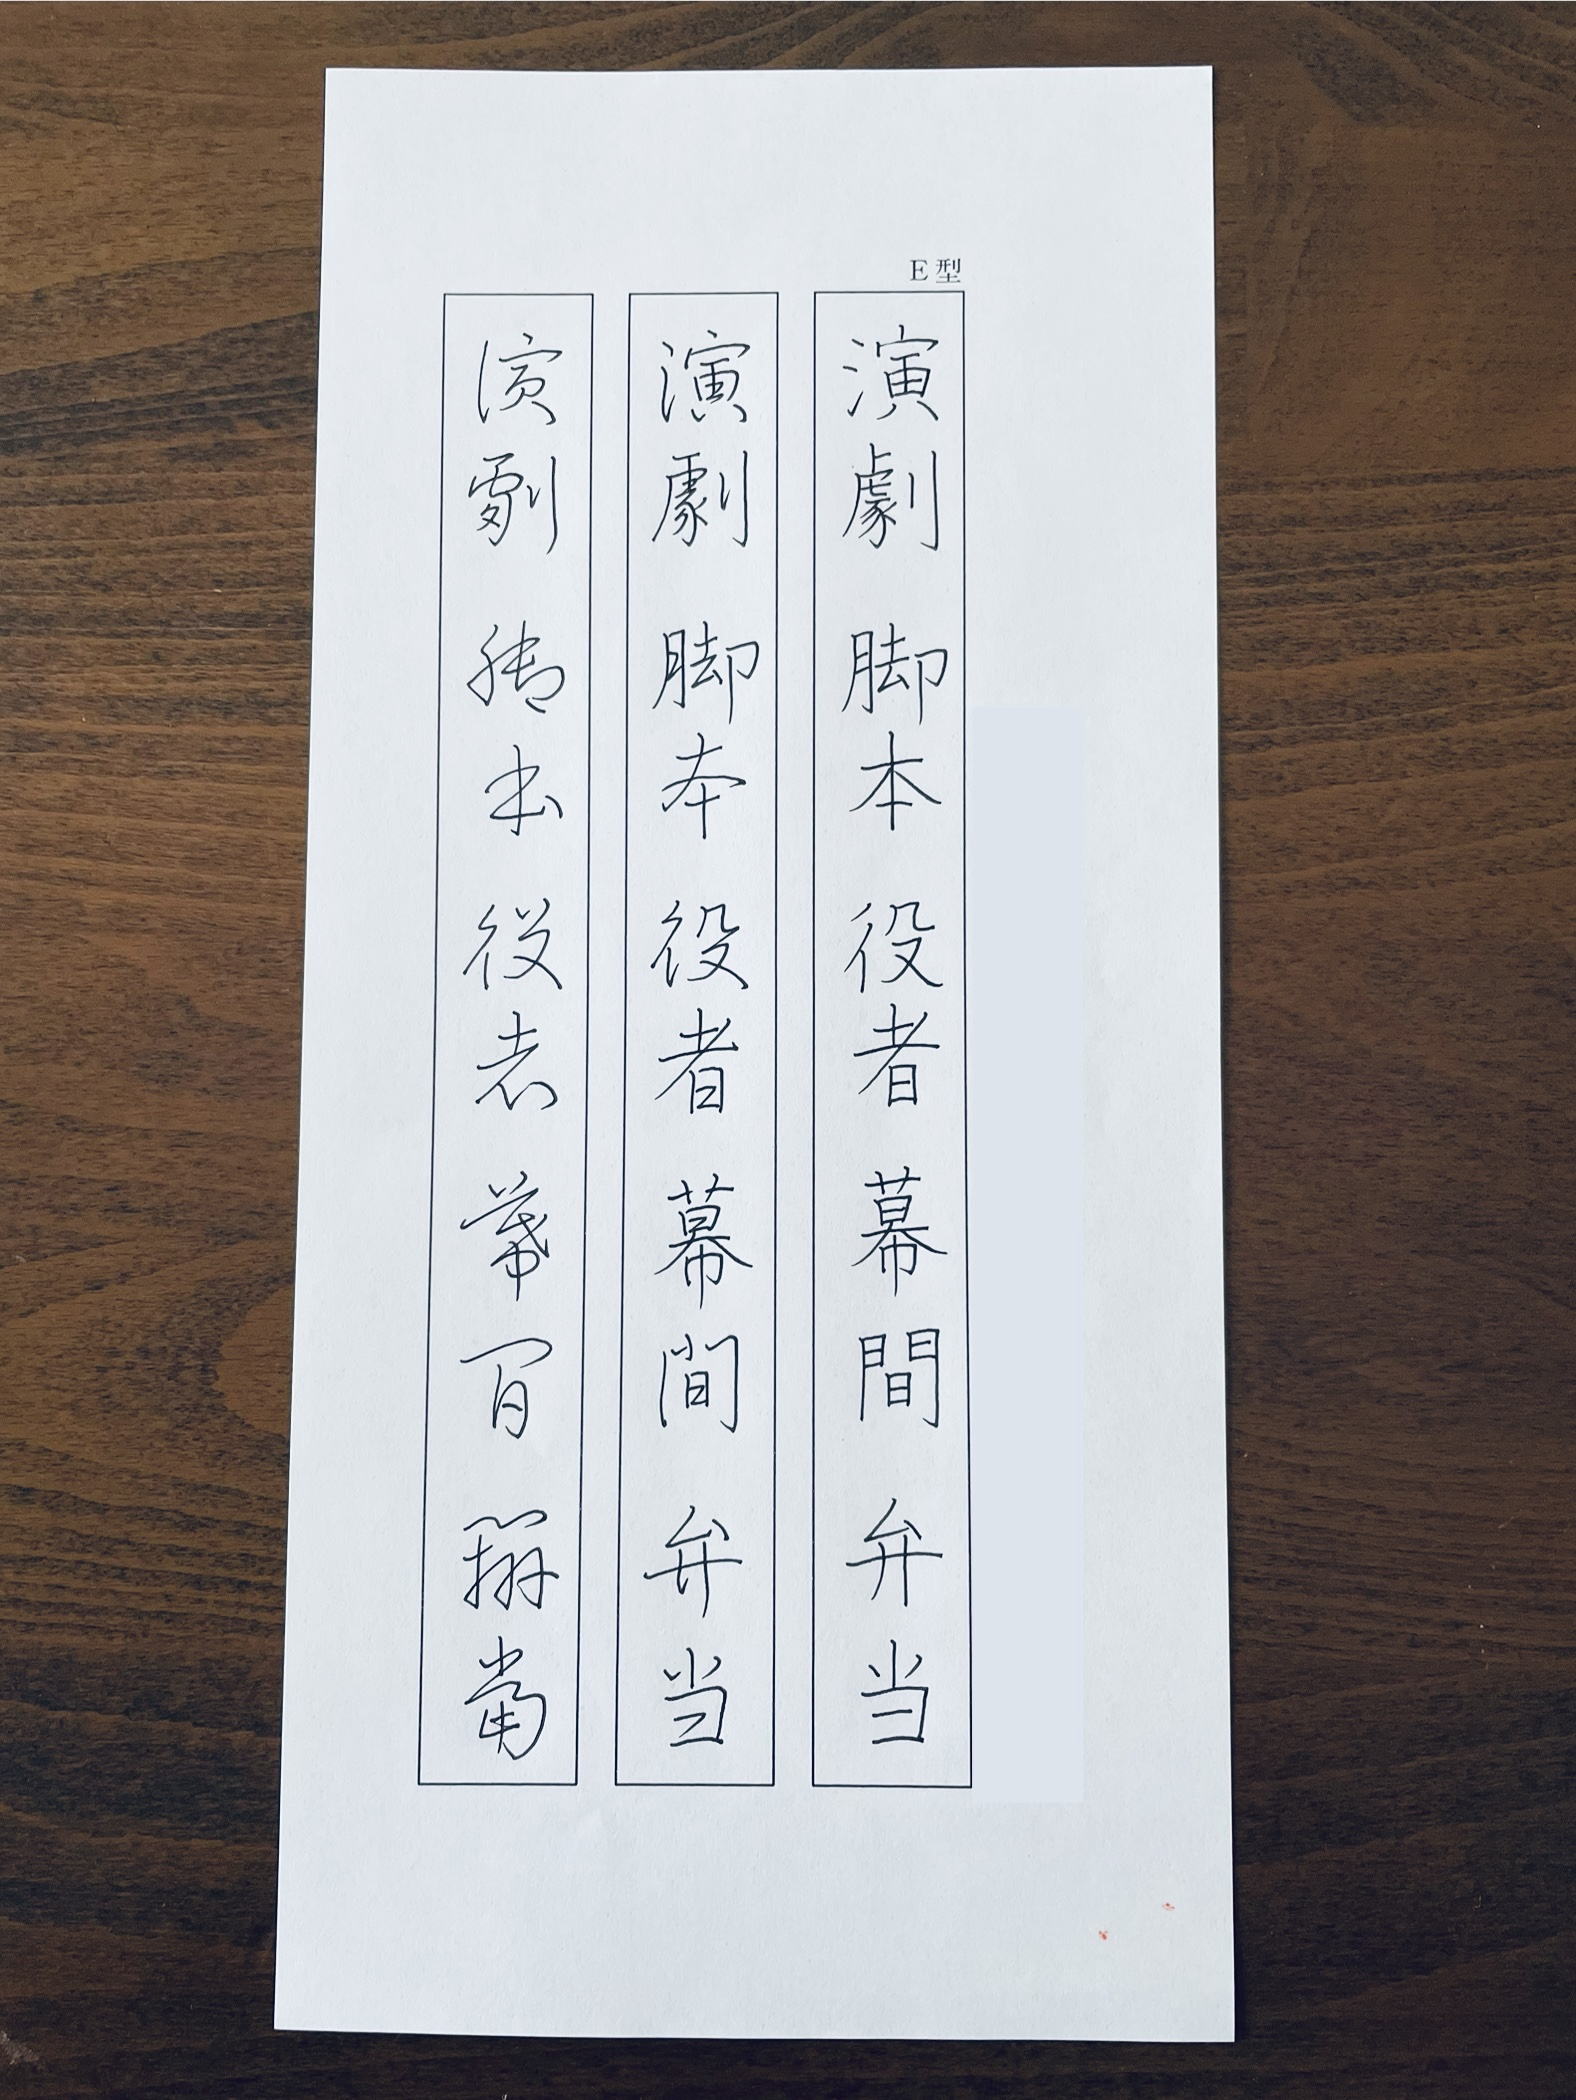 E型
演劇 脚本 役者 幕間 弁当
演劇 脚本 役者 幕間 弁当
演劇 脚本 役者 幕間 辨當